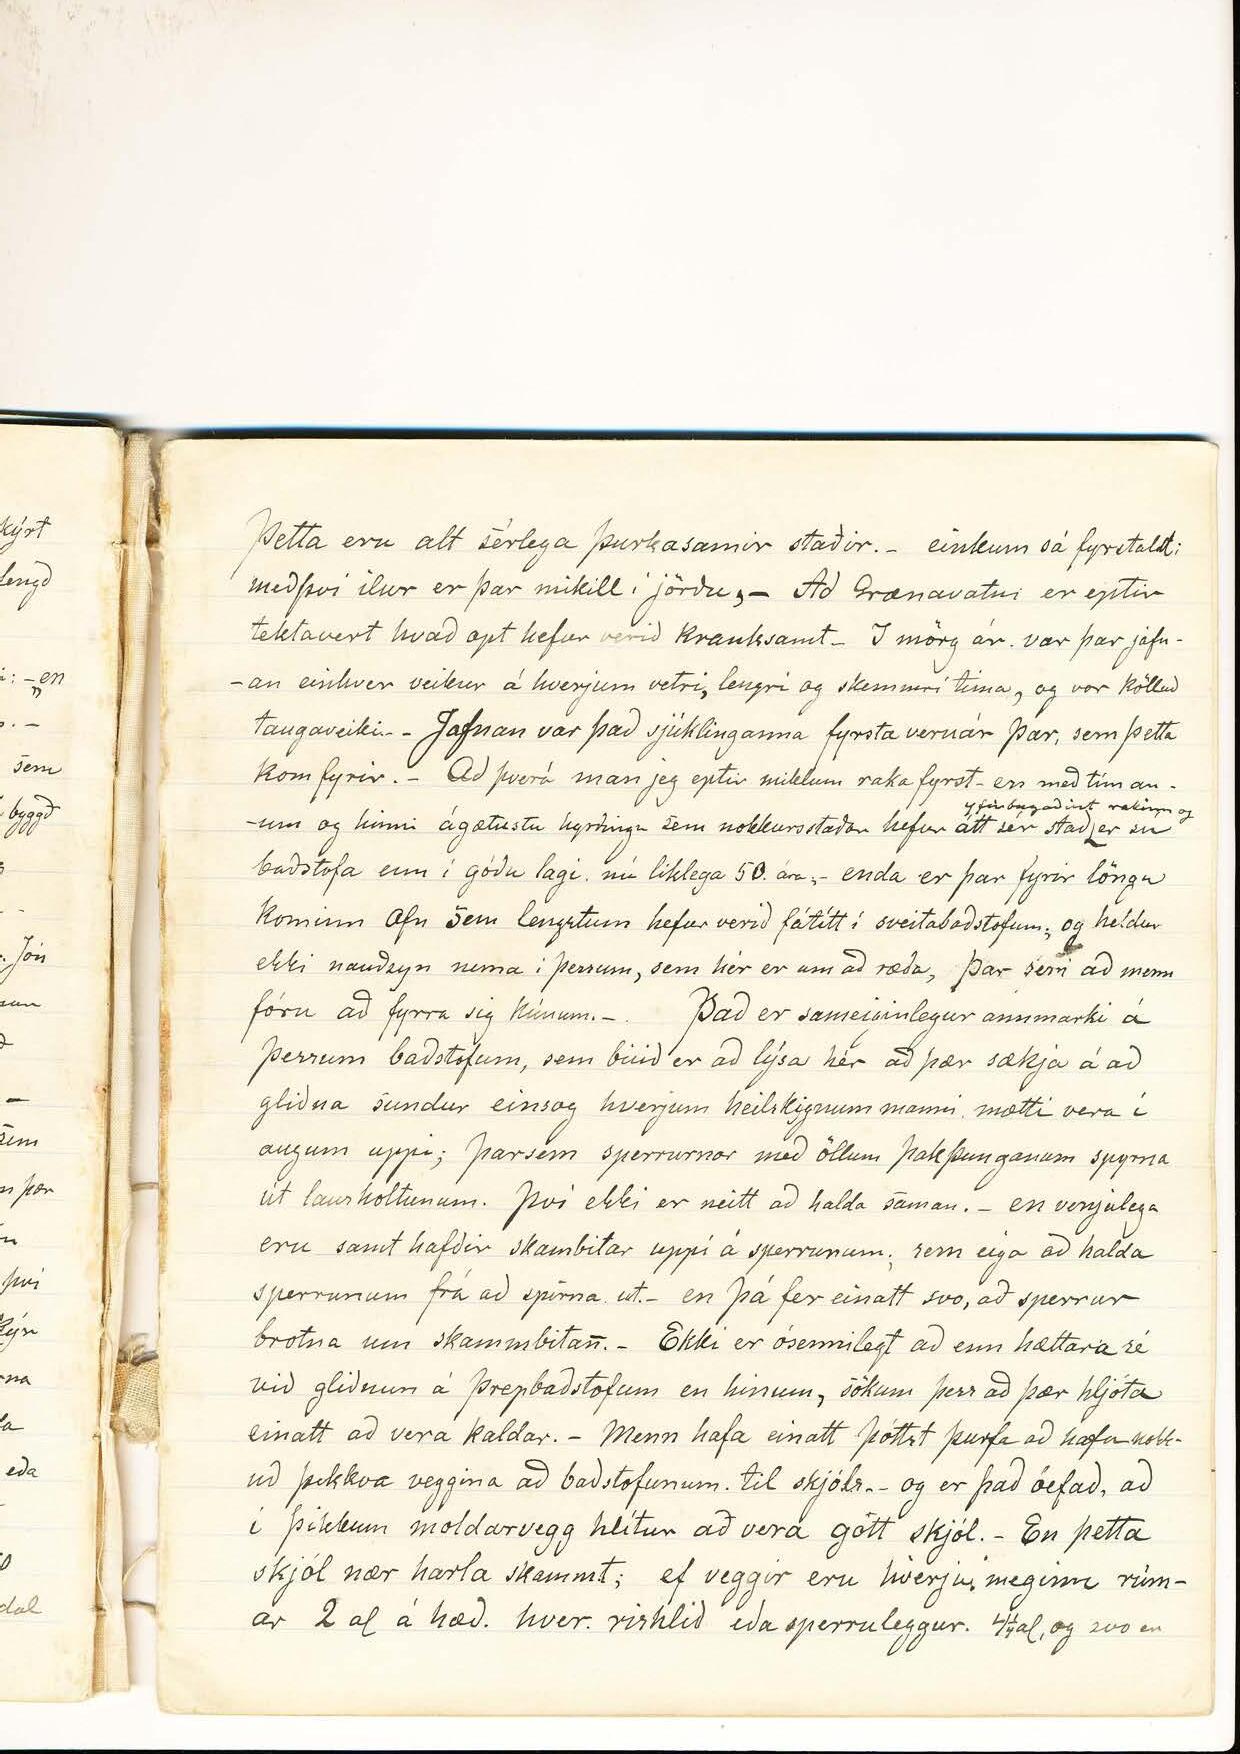 Þetta eru alt sérlega þurkasamir staðir. - einkum sá fyrstaldi:
með því ilur er þar mikill í jörðu, - Að Grænavatni er eptir
tektavert hvað opt hefur verið kranksamt - I mörg ár. var þar jafn-
-an einhver veikur á hverjum vetri, lengri og skemmri tima, og var kölluð
taugaveiki. - Jafnan var það sjúklinganna fyrsta veruár þar, sem þetta
kom fyrir. - Að þverá man jeg eptir miklum raka fyrst - en með tíman-
yfirbugaðist rakinn og
-um og hinni ágætustu hyrðingu sem nokkursstaðar hefur átt sér stað er sú
baðstofa enn í góðu lagi nú liklega 50. ára, - enda er þar fyrir löngu
kominn ofn sem lengstum hefur verið fátítt í sveitabaðstofum; og heldur
ekki nauðsyn nema i þessum, sem hér er um að ræða, Þar sem að menn
fóru að fyrra sig kúnum. - Það er sameiginlegur annmarki á
þessum baðstofum, sem búið er að lýsa hér að þær sækja á að
gliðna sundur einsog hverjum heilskygnum manni mætti vera í
augum uppi; þarsem sperrurnar með öllum þakþunganum spyrna
út lausholtunum. Því ekki er neitt að halda saman. - en venjulega
eru samt hafðir skambitar uppí á sperrunum, sem eiga að halda
sperrunum frá að spirna út. - en þá fer einatt svo, að sperrur
brotna um skammbitan. - Ekki er ósennilegt að enn hættara sé
við gliðnun á þrepbaðstofum en hinum, sökum þess að þær hljóta
einatt að vera kaldar. - Menn hafa einatt þóttst þurfa að hafa nokk-
uð þikkva veggina að baðstofunum. til skjóls. - og er það óefað, að
í þikkum moldarvegg hlítur að vera gott skjól. - En þetta
skjól nær harla skammt; ef veggir eru hverju meginn rúm-
ar 2 al á hæð. hver. rishlið eða sperruleggur. al, og svo er